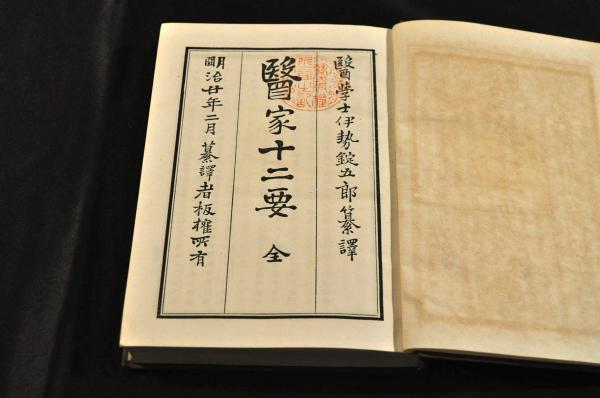 醫學士伊勢錠五郎纂譯
醫家十二要 全
明治廿年二月 纂譯者板權所有